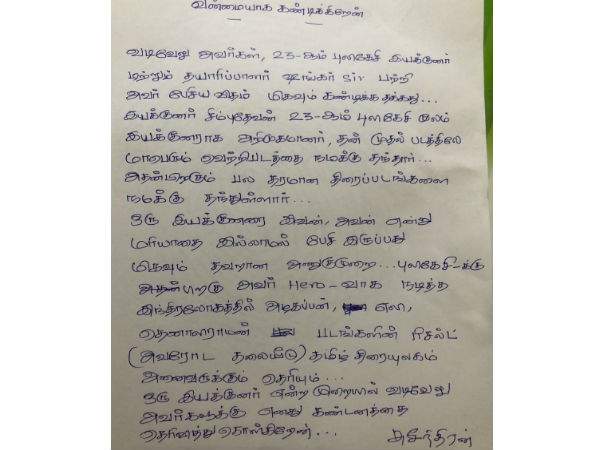 வன்மையாக கண்டிக்கிறேன்
வடிவேலு அவர்கள், 23-ஆம் புலிகேசி இயக்குனர்
மற்றும் தயாரிப்பாளர் ஷங்கர் sir பற்றி
அவர் பேசிய விதம் மிகவும் கண்டிக்க தக்கது...
இயக்குனர் சிம்புதேவன் 23-ஆம் புலிகேசி மூலம்
இயக்குனராக அறிமுகமானர், தன் முதல் படத்திலே
மாபெரும் வெற்றிபடத்தை நமக்கு தந்தார்...
அதன்பிறகும் பல தரமான திரைப்படங்களை
நமக்கு தந்துள்ளார்...
ஒரு இயக்குனரை இவன், அவன் என்று
மரியாதை இல்லாமல் பேசி இருப்பது
மிகவும் தவறான அணுகுமுறை... புலிகேசி-க்கு
பிறகு அவர் Hero-வாக நடித்த
இந்திரலோகத்தில் அழகப்பன், எலி,
தெனாலிராமன் படங்களின் ரிசல்ட்
(அவரோட தலையீடு) தமிழ் திரையுலகம்
அனைவருக்கும் தெரியும்...
ஒரு இயக்குனர் என்ற முறையில் வடிவேலு
அவர்களுக்கு எனது கண்டனத்தை
தெரிவித்து கொள்கிறேன்... சுசீந்திரன்